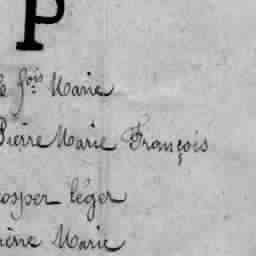 P
e fois Marie
Pierre Marie François
rosper léger
ierre Marie